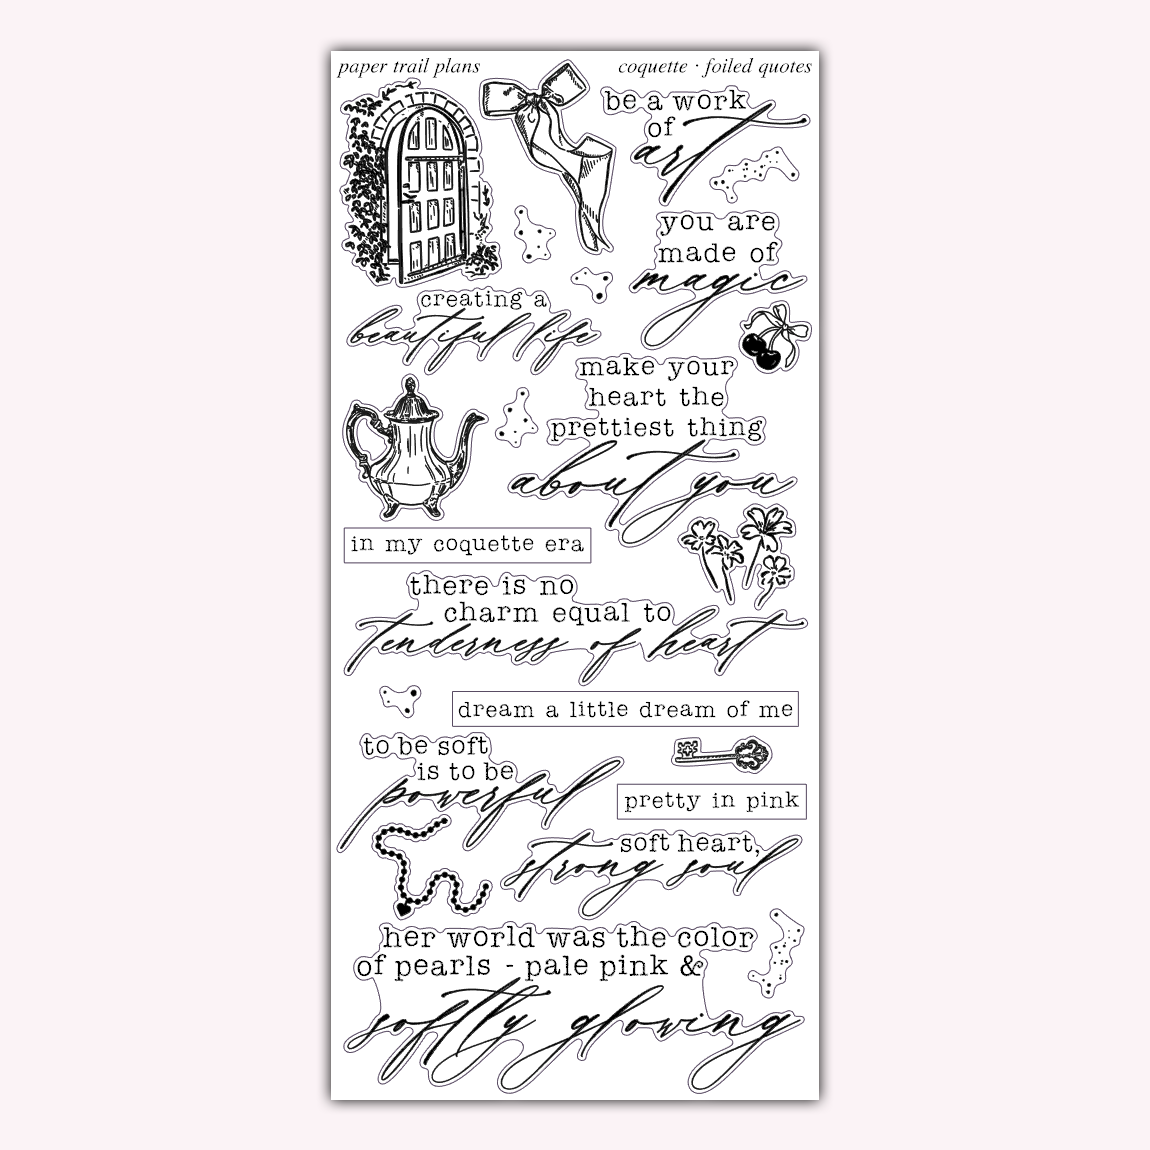 paper trail plans
coquette · foiled quotes
be a work
of
art
you are
made of
magic
creating a
beautiful life
make your
heart the
prettiest thing
about you
in my coquette era
there is no
charm equal to
tenderness of heart
dream a little dream of me
to be soft
is to be
powerful
pretty in pink
soft heart,
strong soul
her world was the color
of pearls - pale pink &
softly glowing